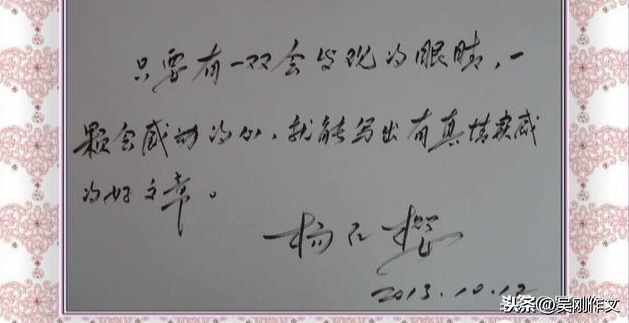 只要有一双会发现的眼睛，一
颗会感动的心，就能写出有真情实感
的好文章。
杨红樱
2013.10.12
头条@吴刚作文